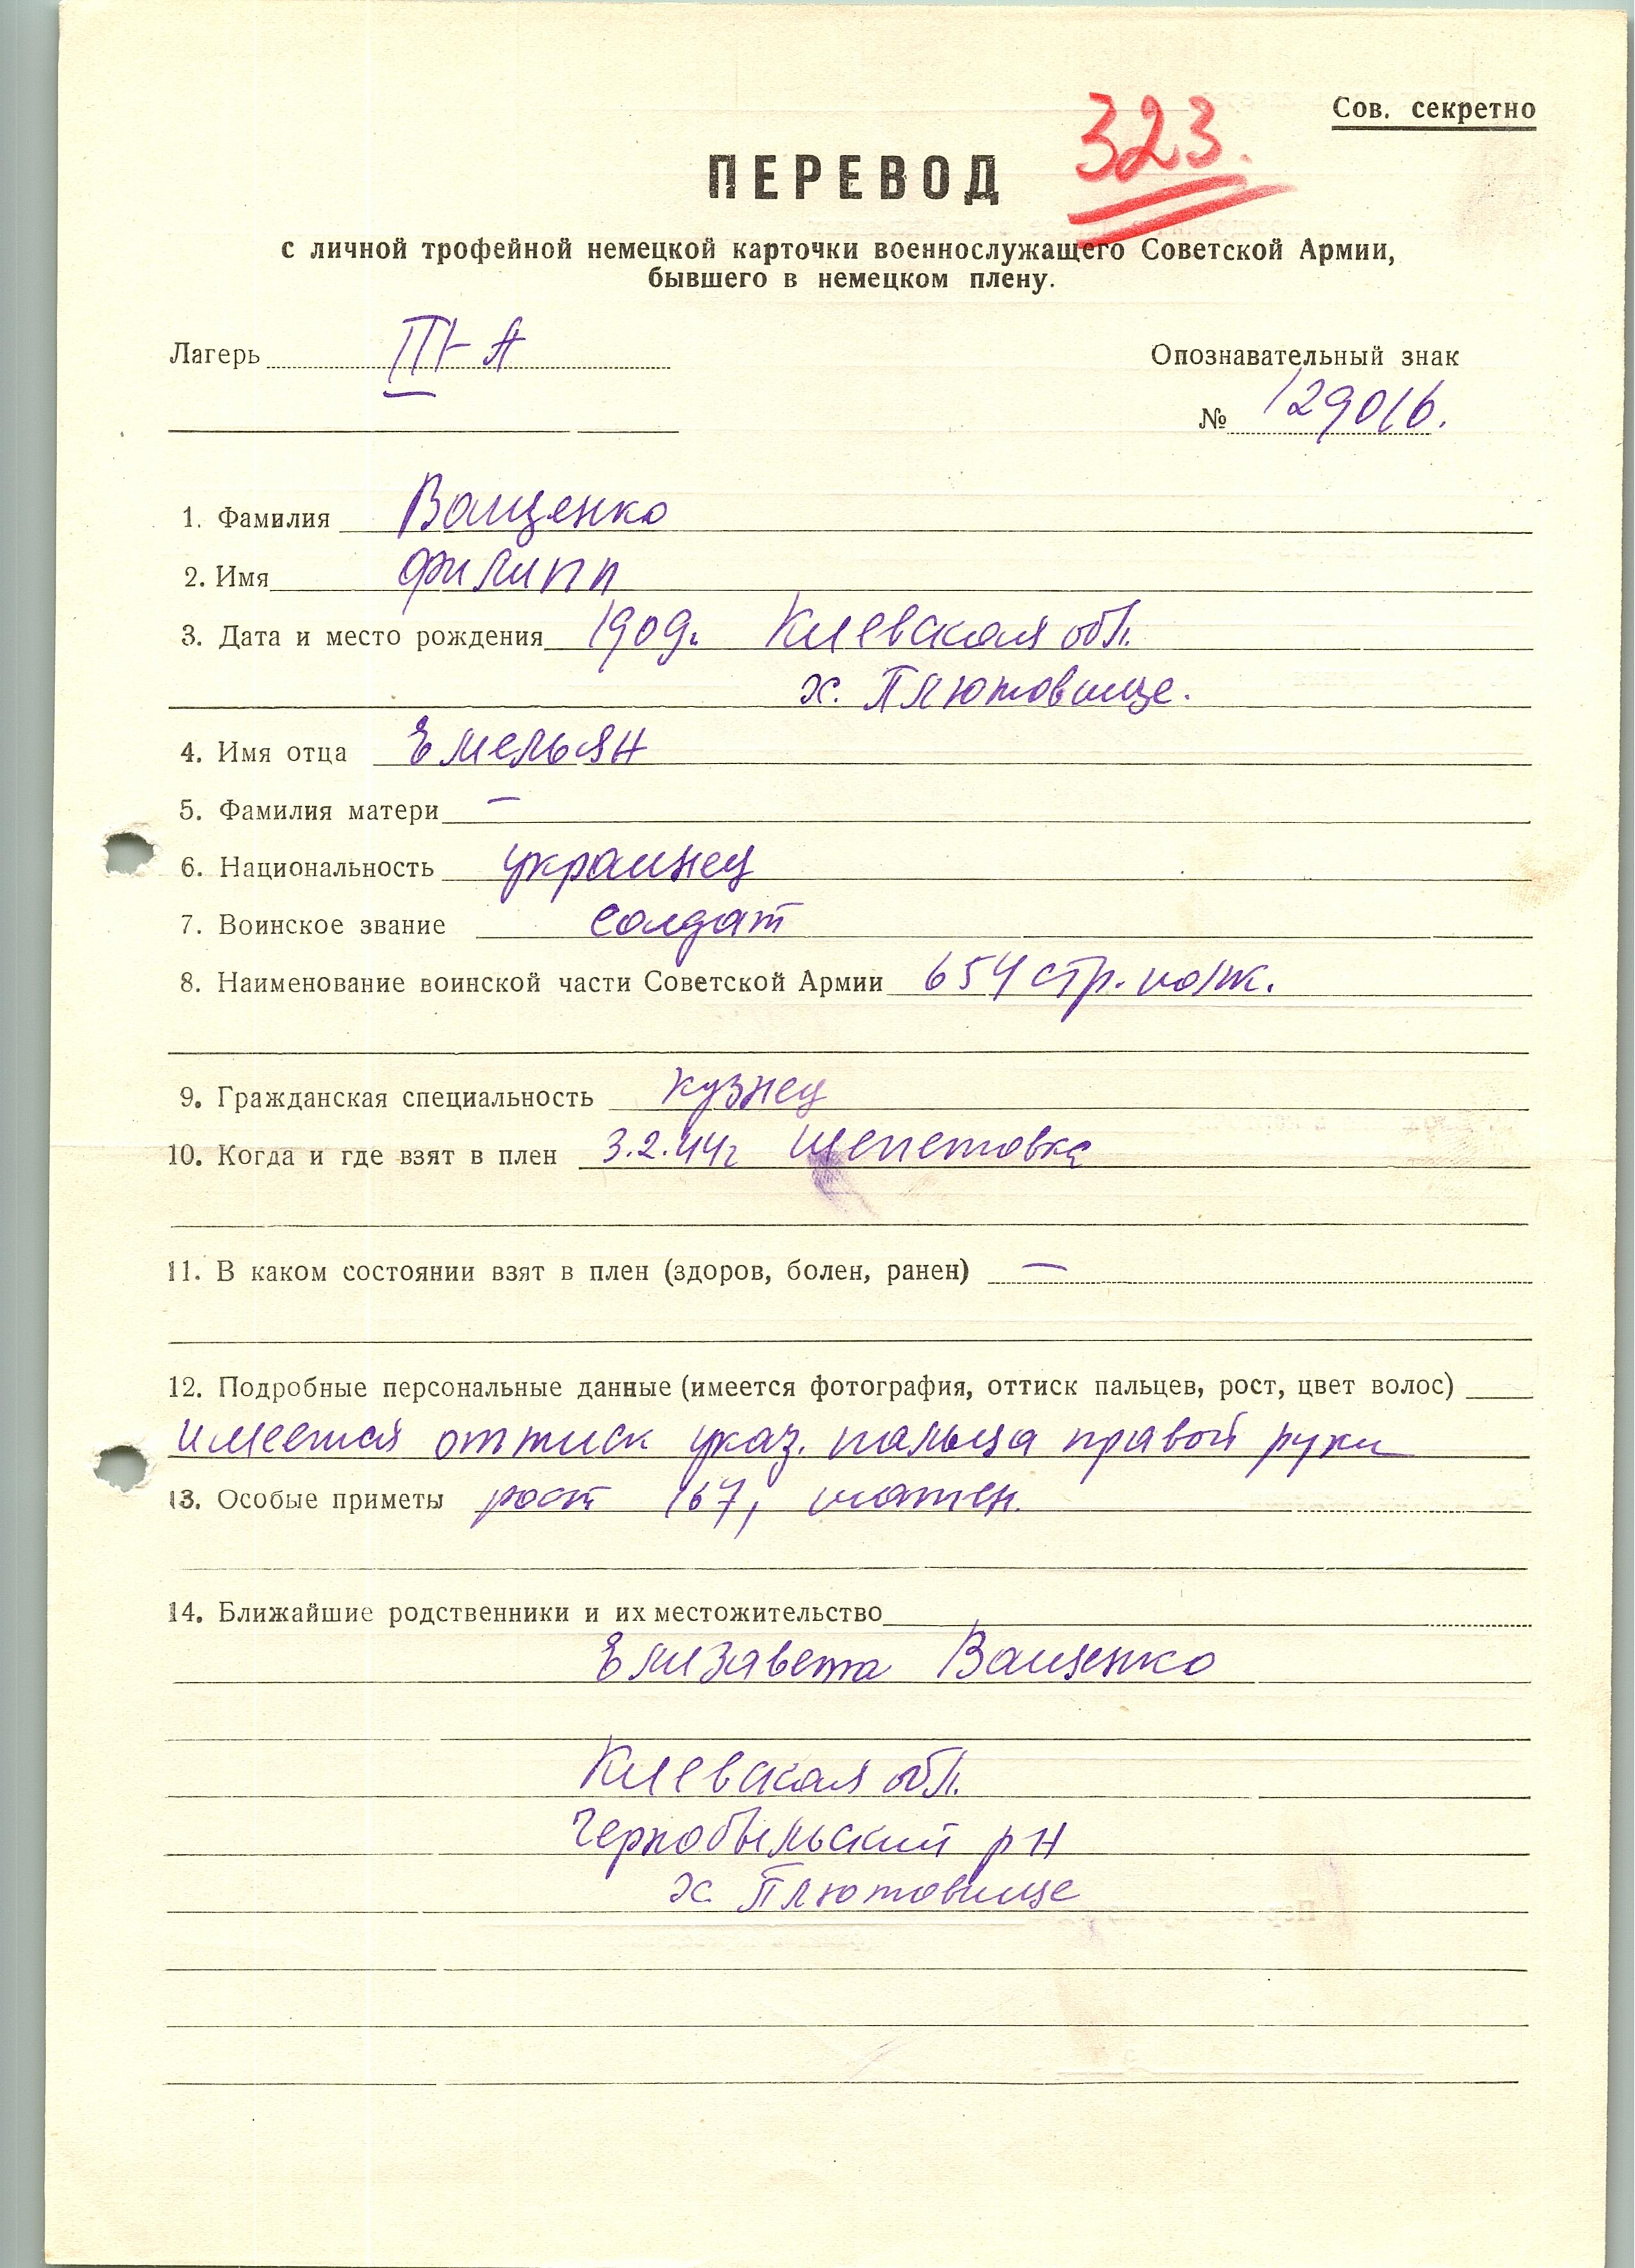 Сов. секретно
323.
ПЕРЕВОД
с личной трофейной немецкой карточки военнослужащего Советской Армии,
бывшего в немецком плену.
Лагерь III-А
Опознавательный знак
№ 129016.
1. Фамилия Ващенко
2. Имя Филипп
3. Дата и место рождения 1909г. Киевская обл.
х. Плютовище.
4. Имя отца Емельян
5. Фамилия матери —
6. Национальность украинец
7. Воинское звание солдат
8. Наименование воинской части Советской Армии 654 стр. полк.
9. Гражданская специальность кузнец
10. Когда и где взят в плен 3.2.44г Шепетовка
11. В каком состоянии взят в плен (здоров, болен, ранен) —
12. Подробные персональные данные (имеется фотография, оттиск пальцев, рост, цвет волос)
имеется оттиск указ. пальца правой руки
13. Особые приметы рост 167, шатен.
14. Ближайшие родственники и их местожительство
Елизавета Ващенко
Киевская обл.
Чернобыльский рн
х. Плютовище